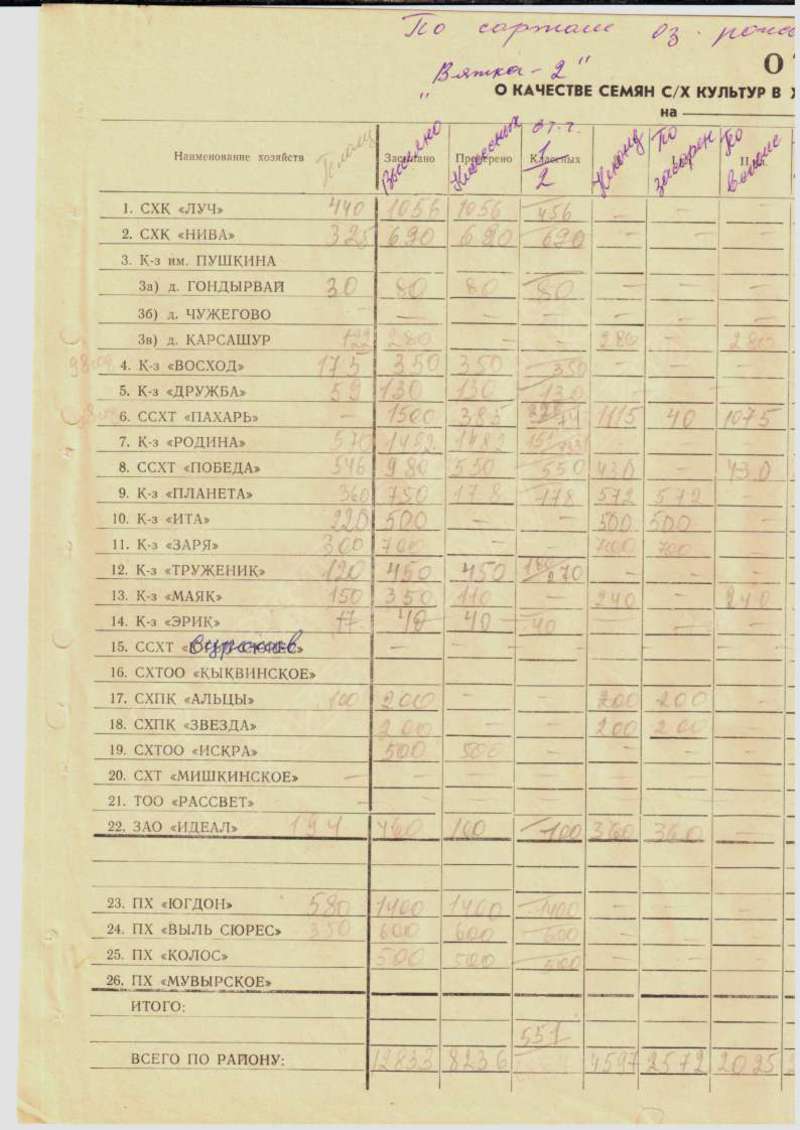 По сортам оз.
"Вятка-2"
О КАЧЕСТВЕ СЕМЯН С/Х КУЛЬТУР В
на
Наименование хозяйств Площ Засыпано Проверено Классных П
Высеяно Классных 1/2 Неконд По засорен По
1. СХК «ЛУЧ» 440 1056 1056 456 – – –
2. СХК «НИВА» 325 690 690 690 – – –
3. К-з им. ПУШКИНА
3а) д. ГОНДЫРВАЙ 30 80 80 80 – – –
3б) д. ЧУЖЕГОВО – – – – – – –
3в) д. КАРСАШУР 122 280 – – 280 – 280
4. К-з «ВОСХОД» 175 350 350 350 – – –
5. К-з «ДРУЖБА» 59 130 130 130 – – –
6. ССХТ «ПАХАРЬ» – 1500 385 1115 40 1075
7. К-з «РОДИНА» 570 1482 1482 – – –
8. ССХТ «ПОБЕДА» 546 980 550 550 430 430
9. К-з «ПЛАНЕТА» 360 750 178 178 572 572 –
10. К-з «ИТА» 220 500 – – 500 500 –
11. К-з «ЗАРЯ» 300 700 – – 700 700 –
12. К-з «ТРУЖЕНИК» 120 450 450 – – –
13. К-з «МАЯК» 150 350 110 – 240 – 240
14. К-з «ЭРИК» 17 40 40 40 – – –
15. ССХТ – – – – – –
16. СХТОО «КЫКВИНСКОЕ»
17. СХПК «АЛЬЦЫ» 100 200 – – 200 200 –
18. СХПК «ЗВЕЗДА» 200 – – 200 200 –
19. СХТОО «ИСКРА» 500 500 – – – –
20. СХТ «МИШКИНСКОЕ» – – – – – – –
21. ТОО «РАССВЕТ» – – – – – – –
22. ЗАО «ИДЕАЛ» 194 460 100 100 360 360 –
23. ПХ «ЮГДОН» 580 1400 1400 1400 – – –
24. ПХ «ВЫЛЬ СЮРЕС» 350 600 600 600 – – –
25. ПХ «КОЛОС» 500 500 500
26. ПХ «МУВЫРСКОЕ»
ИТОГО:
551
ВСЕГО ПО РАЙОНУ: 12833 8236 4597 2572 2025